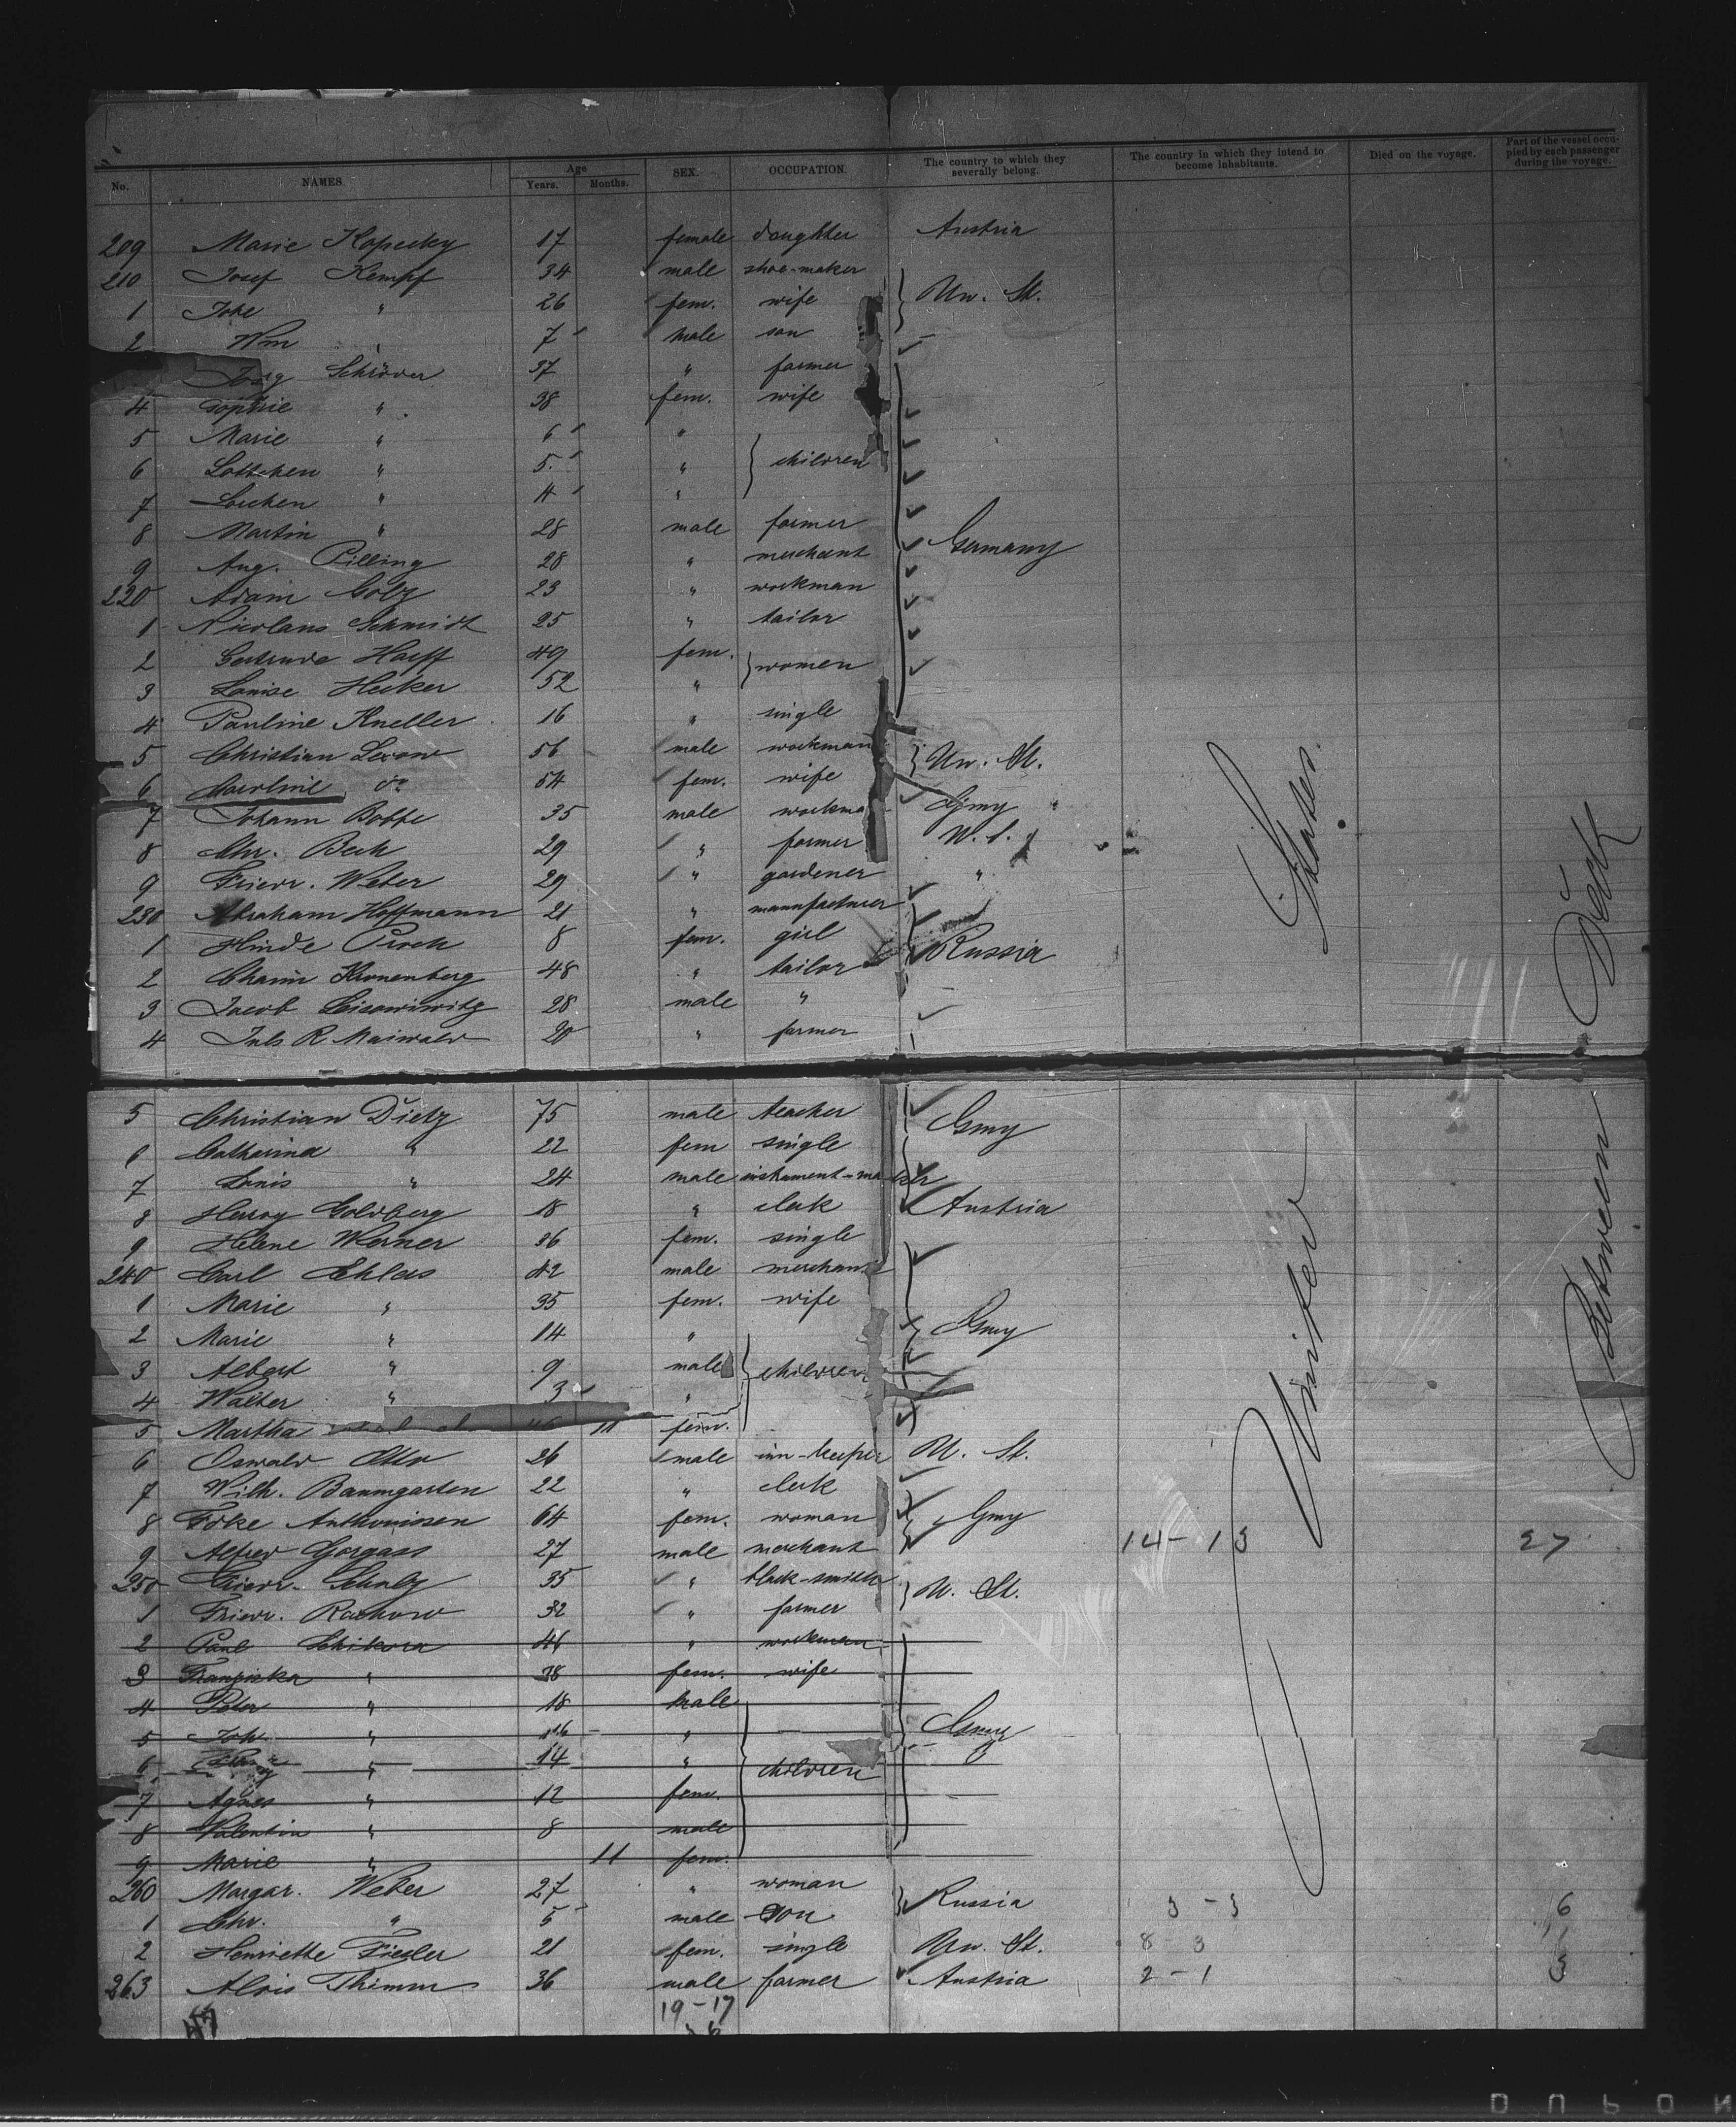 No. NAMES Age Years. Months. SEX. OCCUPATION. The country to which they severally belong. The country in which they intend to become inhabitants. Died on the voyage. Part of the vessel occupied by each passenger during the voyage.
209 Marie Kopecky 17 female daughter Austria
210 Josef Kempf 34 male shoe-maker
1 26 fem. wife Un. St.
2 Wm " 7 male son
Schröder 37 " farmer
4 Sophie " 38 fem. wife
5 Marie " 6 "
6 Lottchen " 5 " children
7 " 4 "
8 Martin " 28 male farmer
9 Aug. Pilling 28 " merchant Germany
220 Adam Golz 23 " workman
1 Nicolaus Schmidt 25 " tailor
2 Gertrude Harff 49 fem. women
3 Louise Hecker 52 "
4 Pauline Kneller 16 " single
5 Christian Lexow 56 male workman Un. St.
6 Caroline do 54 fem. wife
7 Johann Bobbe 35 male Gmy
8 Chr. Beck 29 " farmer U. S.
9 Friedr. Weber 29 " gardener "
230 Abraham Hoffmann 21 " manufacturer
1 Hinde Proch 8 fem. girl Russia
2 Chaim Kronenberg 48 " tailor
3 Jacob 28 male "
4 Juls R Maiwald 20 " farmer
States.
Deck
5 Christian Dietz 75 male teacher Gmy
6 Catharina " 22 fem single
7 Louis " 24 male instrument-maker
8 Henry Goldberg 18 " clerk Austria
9 Helene Werner 36 fem. single
240 Carl Ehlers 42 male merchant
1 Marie " 35 fem. wife
2 Marie " 14 " Gmy
3 Albert " 9 male children
4 Walter " 3 "
5 Martha 11 fem.
6 Oswald Otto 26 male inn-keeper U. St.
7 Wilh. Baumgarten 22 " clerk
8 Foke Anthonissen 64 fem. woman Gmy
9 Alfred Gorgass 27 male merchant 14-13 27
250 Friedr. Schulz 35 " black-smith U. St.
1 Friedr. Rachow 32 " farmer
2 Paul Schikora 46 " workman
3 Franziska " 38 fem. wife
4 Peter " 18 male
5 Joh. " 16 " Gmy
6 " 14 " children
7 Agnes " 12 fem.
8 Valentin " 8 male
9 Marie " 11 fem.
260 Margar. Weber 27 " woman Russia
1 Chr. " 5 male son 3-3 6
2 Henriette Fiesler 21 fem. single Un. St. 8-3
263 Alois Thimm 36 male farmer Austria 2-1 3
19-17
United
Between